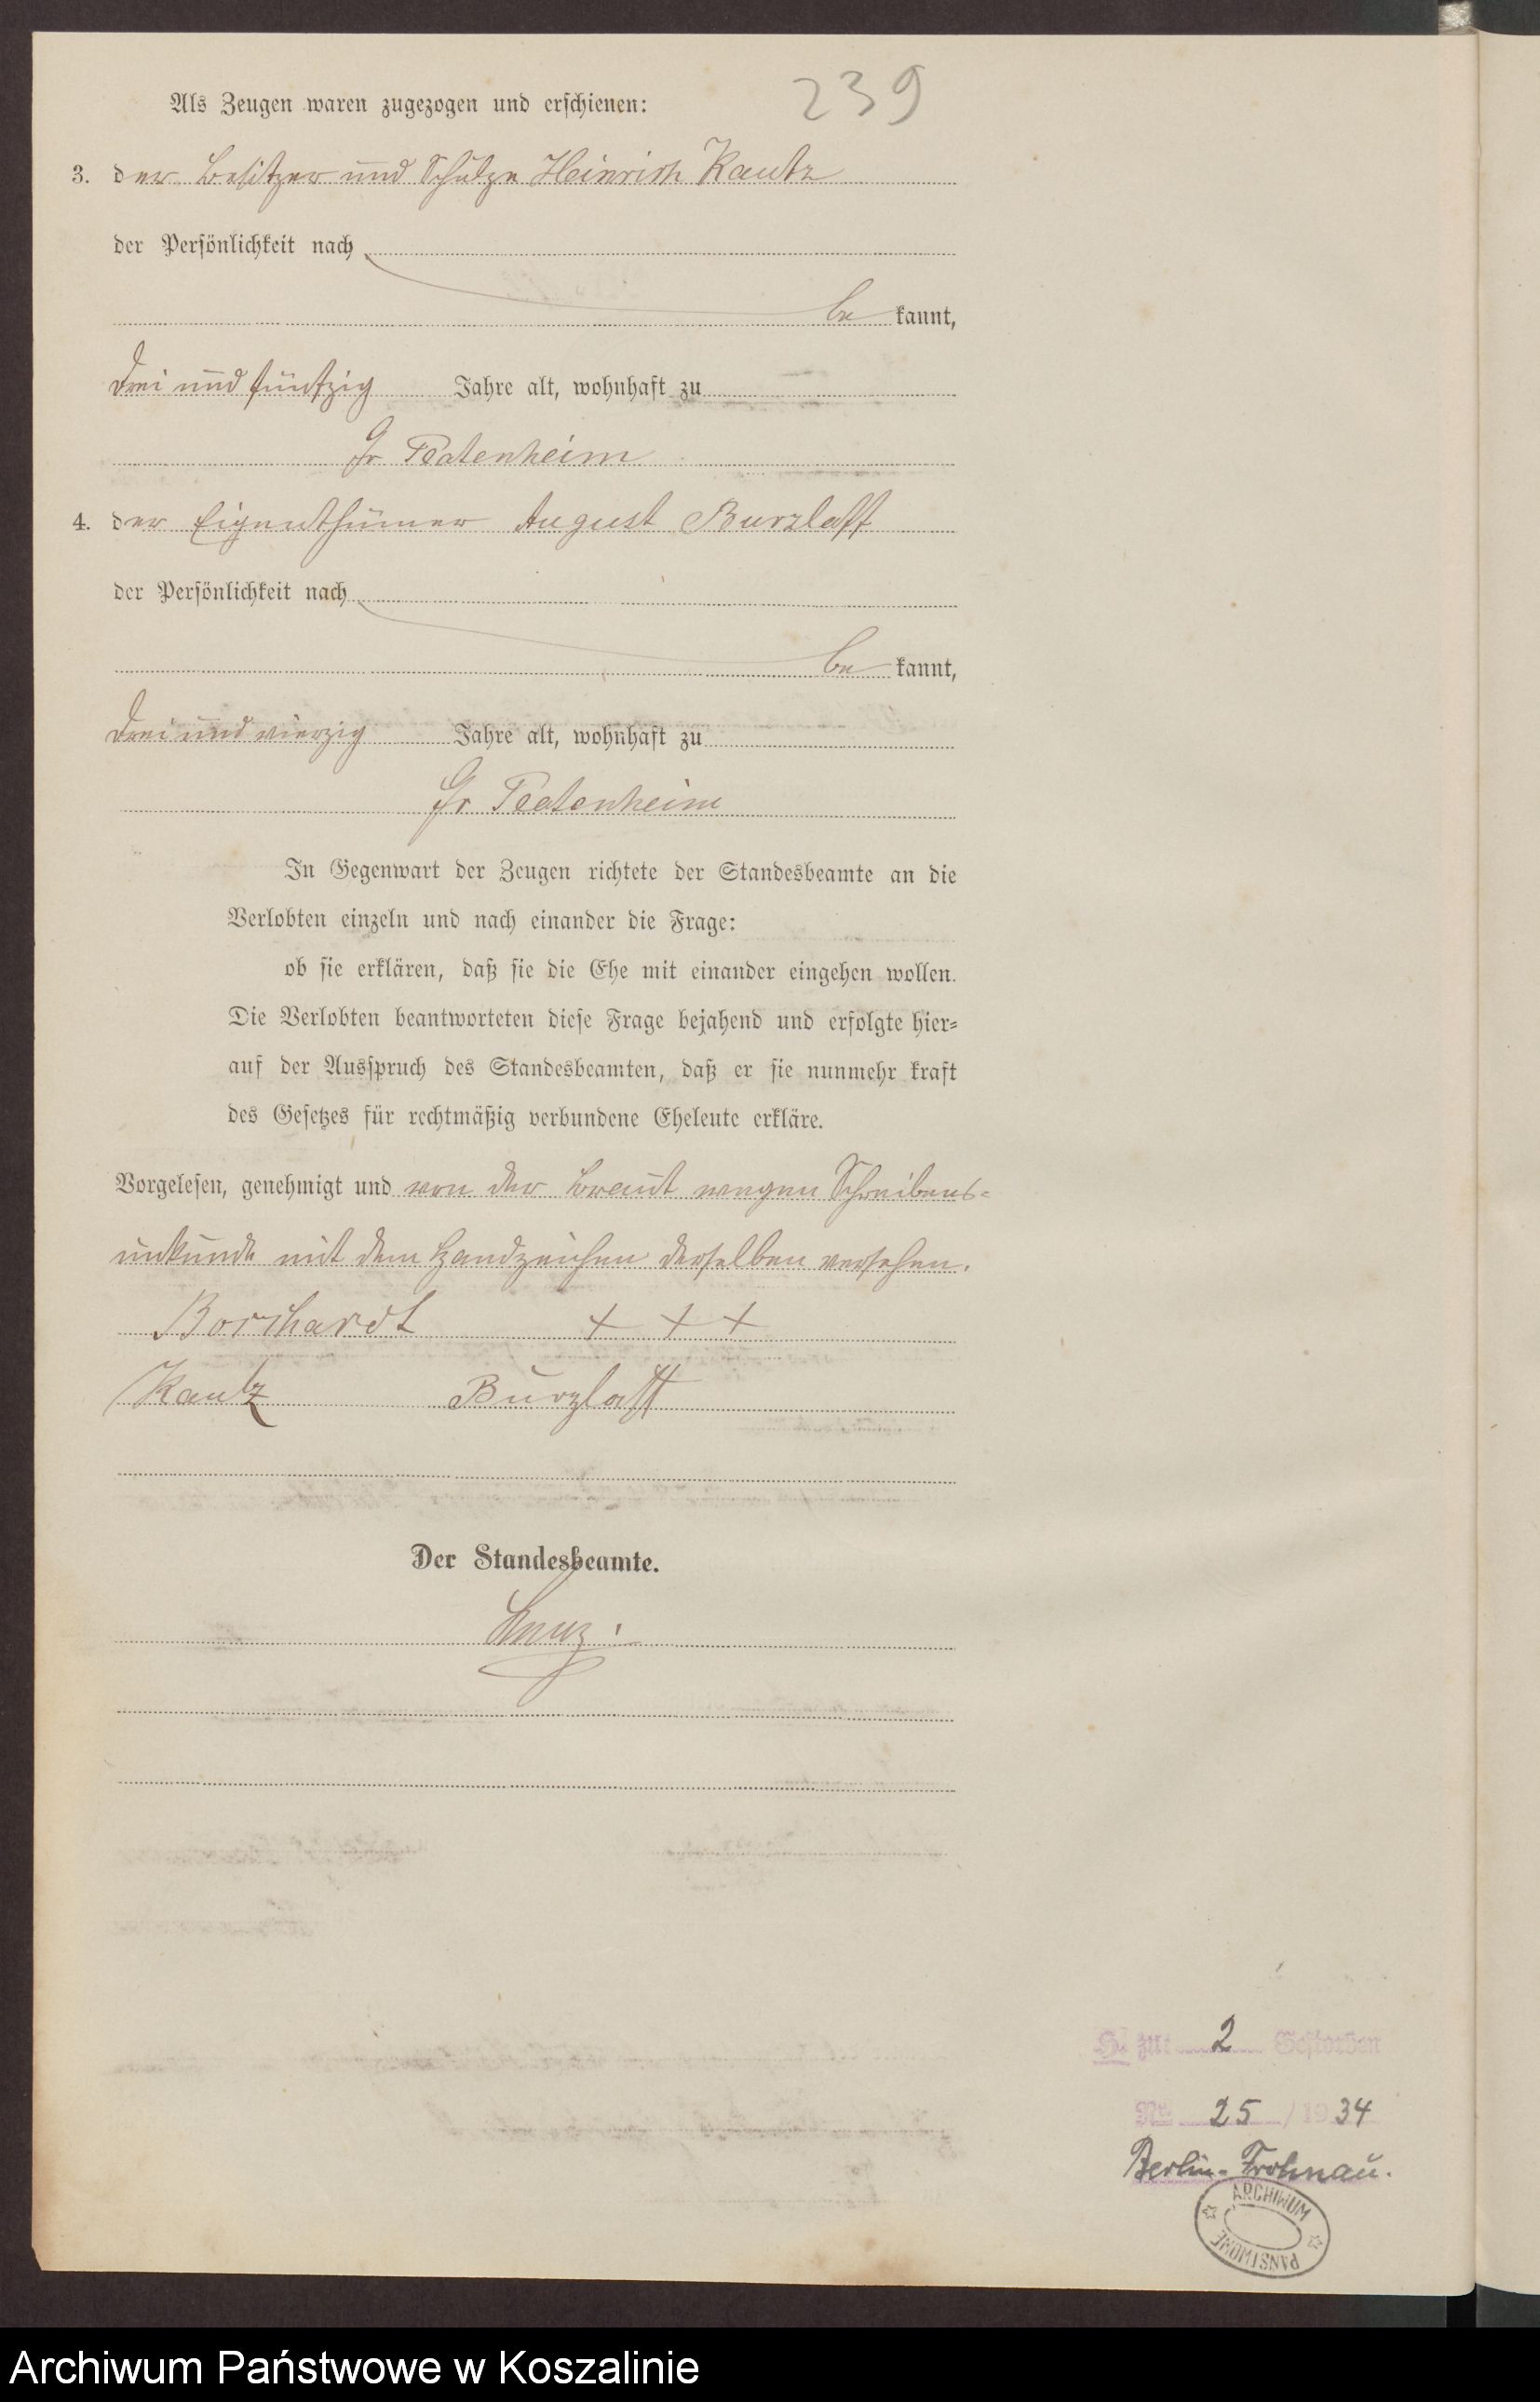 239
Als Zeugen waren zugezogen und erschienen:
3. der Besitzer und Schulze Heinrich Kautz
der Persönlichkeit nach
be kannt,
drei und fünfzig Jahre alt, wohnhaft zu
Gr Platenheim
4. der Eigenthümer August Burzlaff
der Persönlichkeit nach
be kannt,
drei und vierzig Jahre alt, wohnhaft zu
Gr Platenheim
In Gegenwart der Zeugen richtete der Standesbeamte an die
Verlobten einzeln und nach einander die Frage:
ob sie erklären, daß sie die Ehe mit einander eingehen wollen.
Die Verlobten beantworteten diese Frage bejahend und erfolgte hier-
auf der Ausspruch des Standesbeamten, daß er sie nunmehr kraft
des Gesetzes für rechtmäßig verbundene Eheleute erkläre.
Vorgelesen, genehmigt und von der Braut wegen Schreibens-
unkunde mit dem Handzeichen derselben versehen.
Borchardt + + +
Kautz Burzlaff
Der Standesbeamte.
H. zu: 2 Gestorben
Nr. 25 / 1934
Berlin-Frohnau.
ARCHIWUM
PAŃSTWOWE
Archiwum Państwowe w Koszalinie